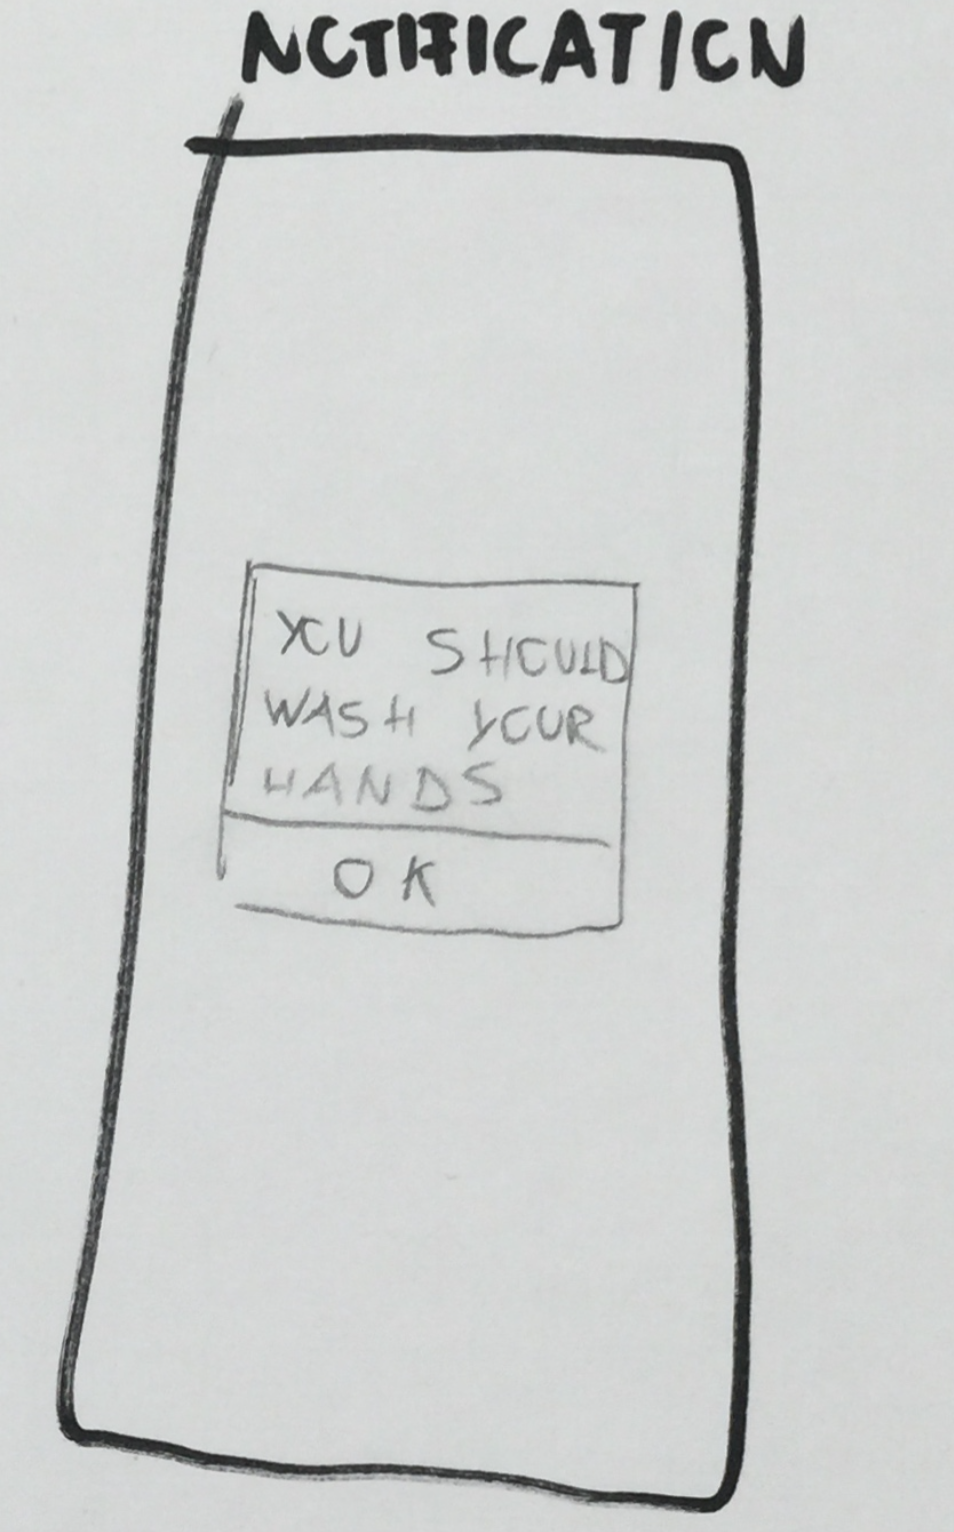 NOTIFICATION
YOU SHOULD
WASH YOUR
HANDS
OK